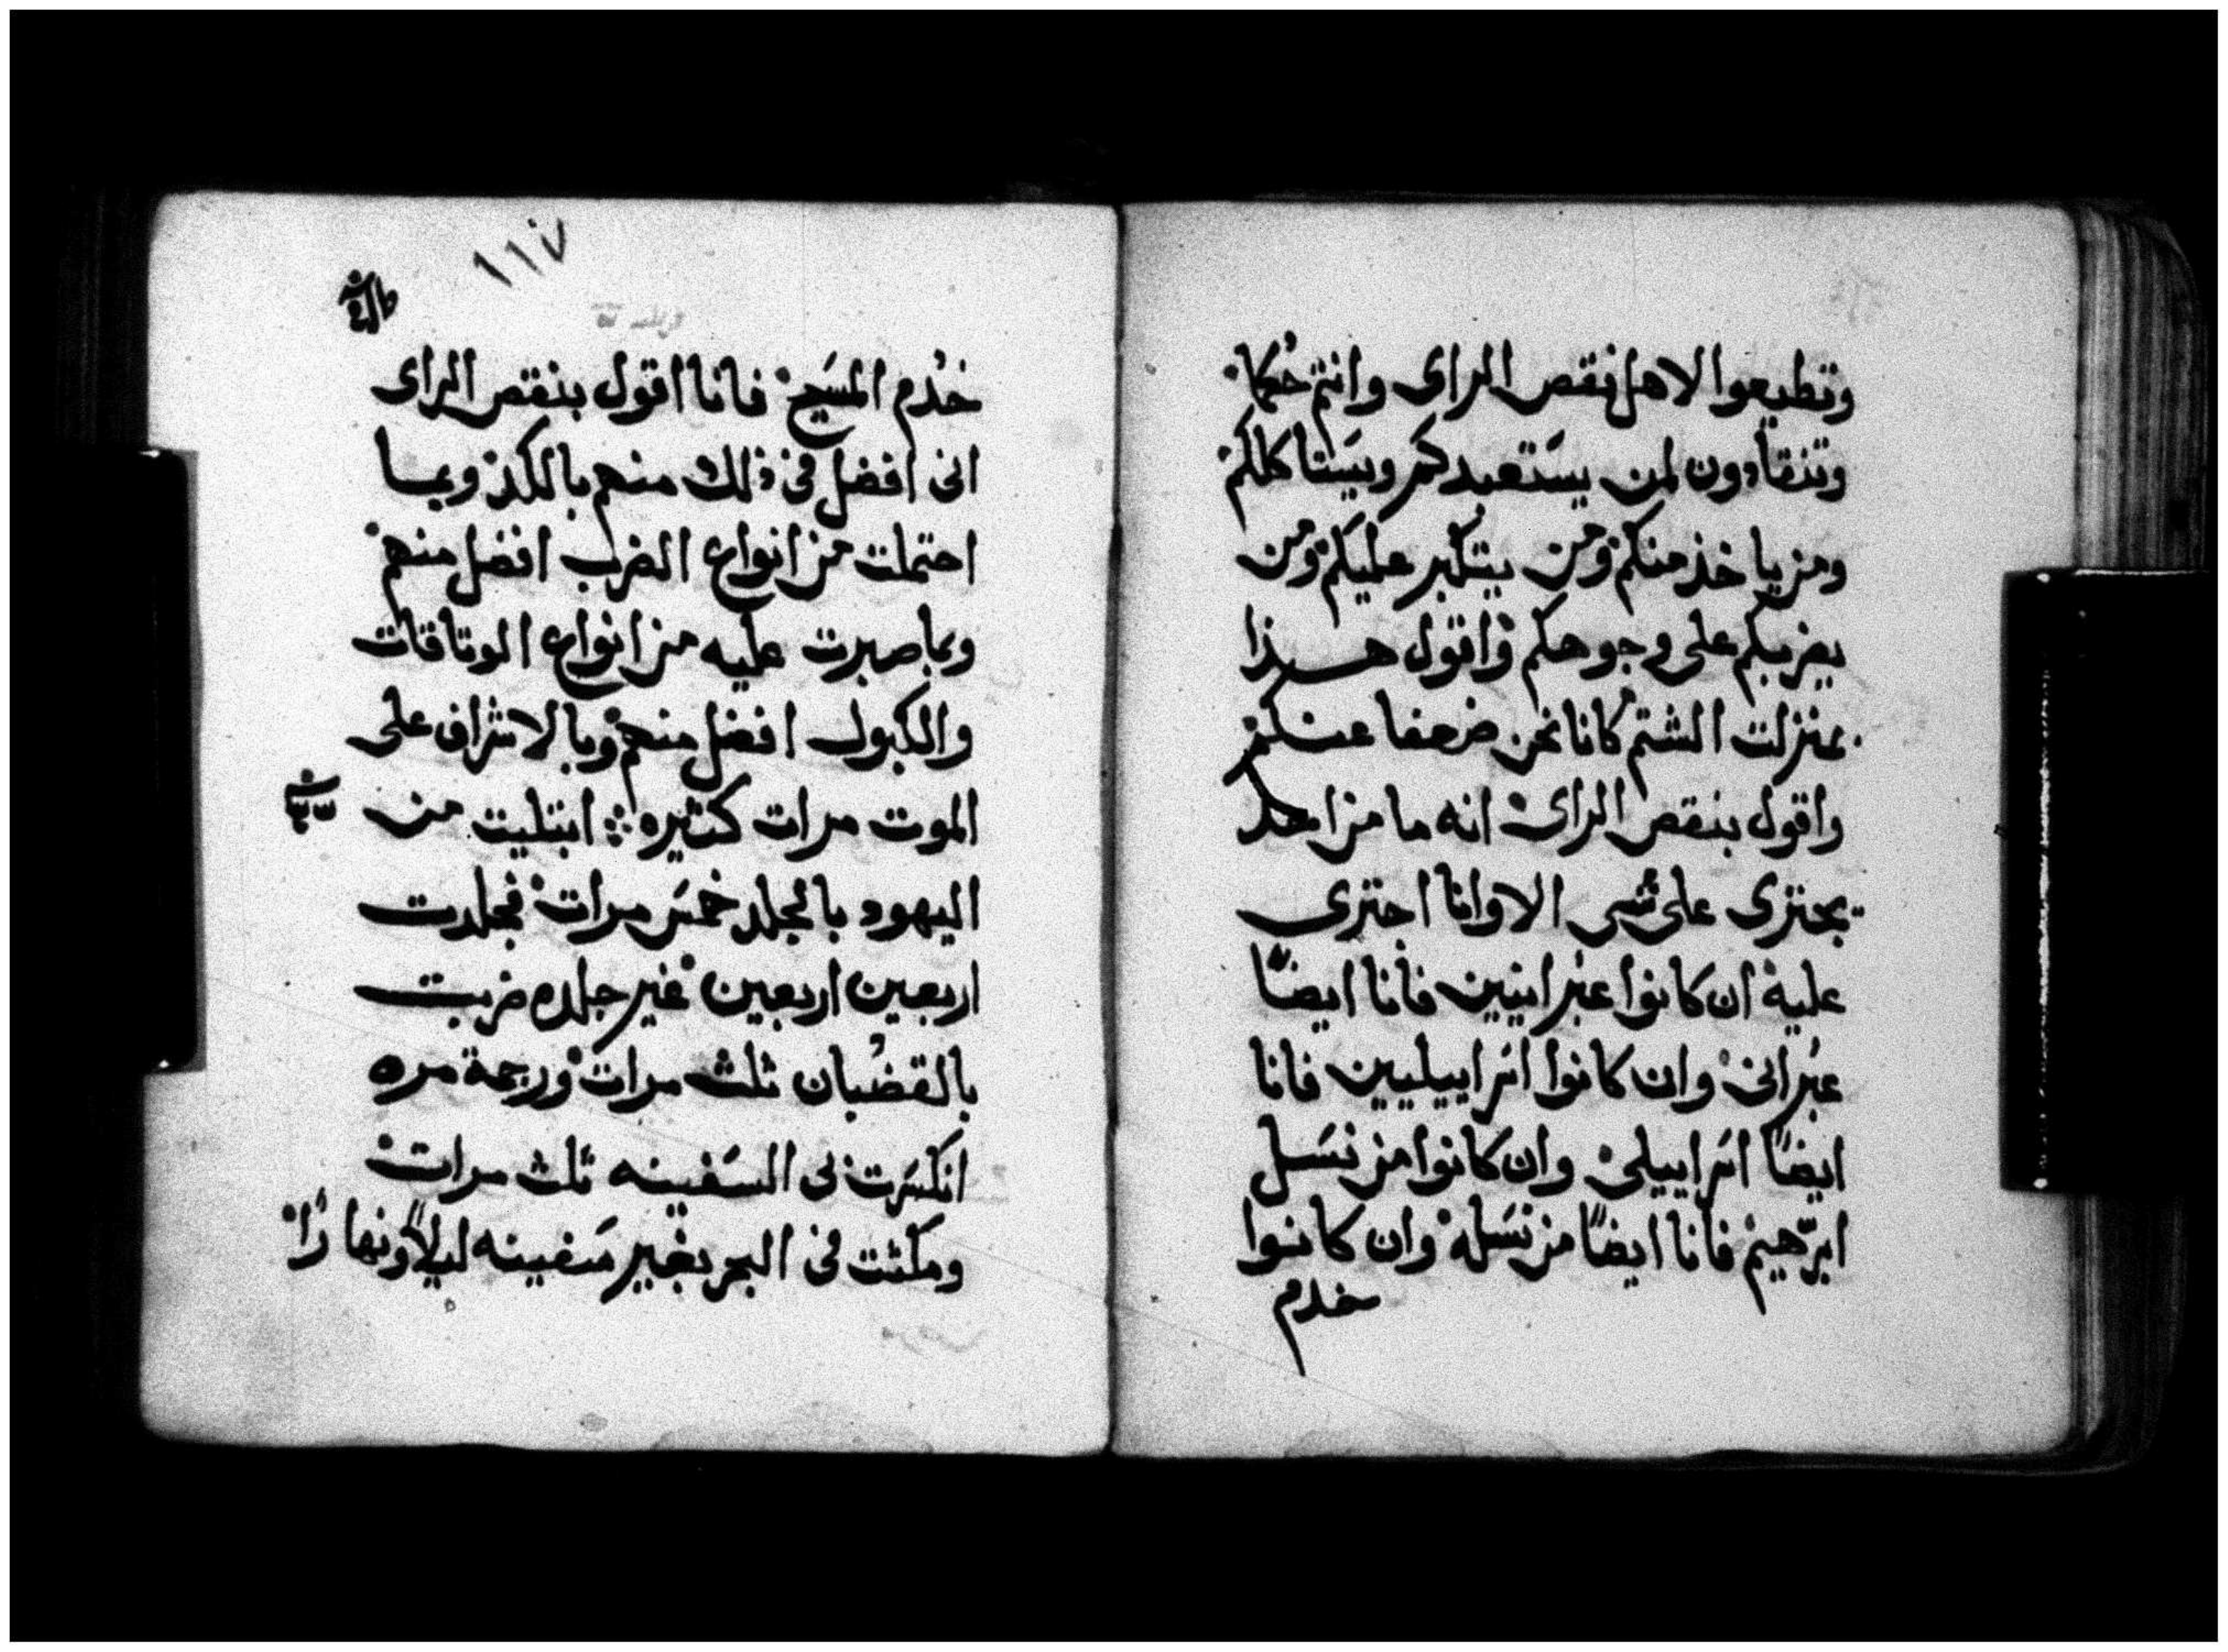 وتطيعوا لاهل نقص الراى وانتم حكما
وتنقادون لمن يستعبدكم ويستاكلكم
ومن ياخذ منكم ومن يتكبر عليكم ومن
يضربكم على وجوهكم واقول هذا
بمنزلت الشتم كانا نحن ضعفا عندكم
واقول بنقص الراى انه ما من احد
يجترى على شى الا وانا اجترى
عليه ان كانوا عبرانيين فانا ايضًا
عبرانى وان كانوا اسراييليين فانا
ايضًا اسراييلى وان كانوا من نسل
ابرهيم فانا ايضًا من نسله وان كانوا
خدم
١١٧
خدم المسيح فانا اقول بنقص الراى
انى افضل فى ذلك منهم بالكد وبما
احتملت من انواع الضرب افضل منهم
وبما صبرت عليه من انواع الوثاقات
والكبول افضل منهم وبالاشراف على
الموت مرات كثيره ابتليت من
اليهود بالجلد خمس مرات فجلدت
اربعين اربعين غير جلده ضربت
بالقضبان ثلث مرات ورجمة مره
انكسرت بى السفينه ثلث مرات
ومكثت فى البحر بغير سفينه ليلاً ونهارًا